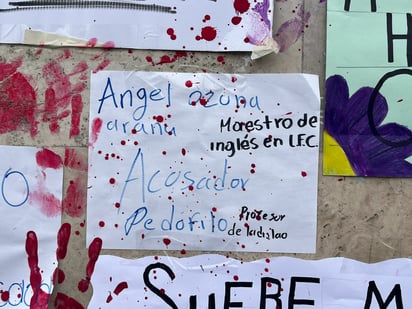 Angel ozona
arana
Maestro de
inglés en L.E.C.
Acosador
Pedofilo
Profesor
de ladislao
SUEBE
M
H